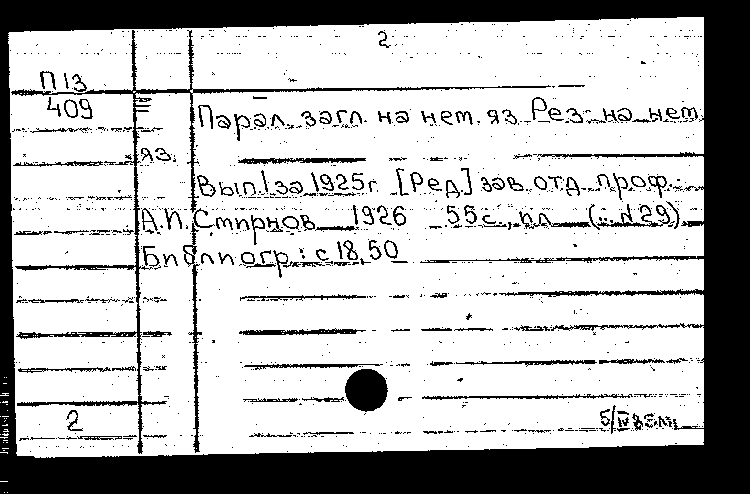 2
П13
409
Парал. загл. на нем. яз. Рез. на нем.
яз.
Вып.1 за 1925г. [Ред.] зав. отд. проф.
А.П. Смирнов 1926 55с., пл. (... №29)
Библиогр.: с 18,50
2